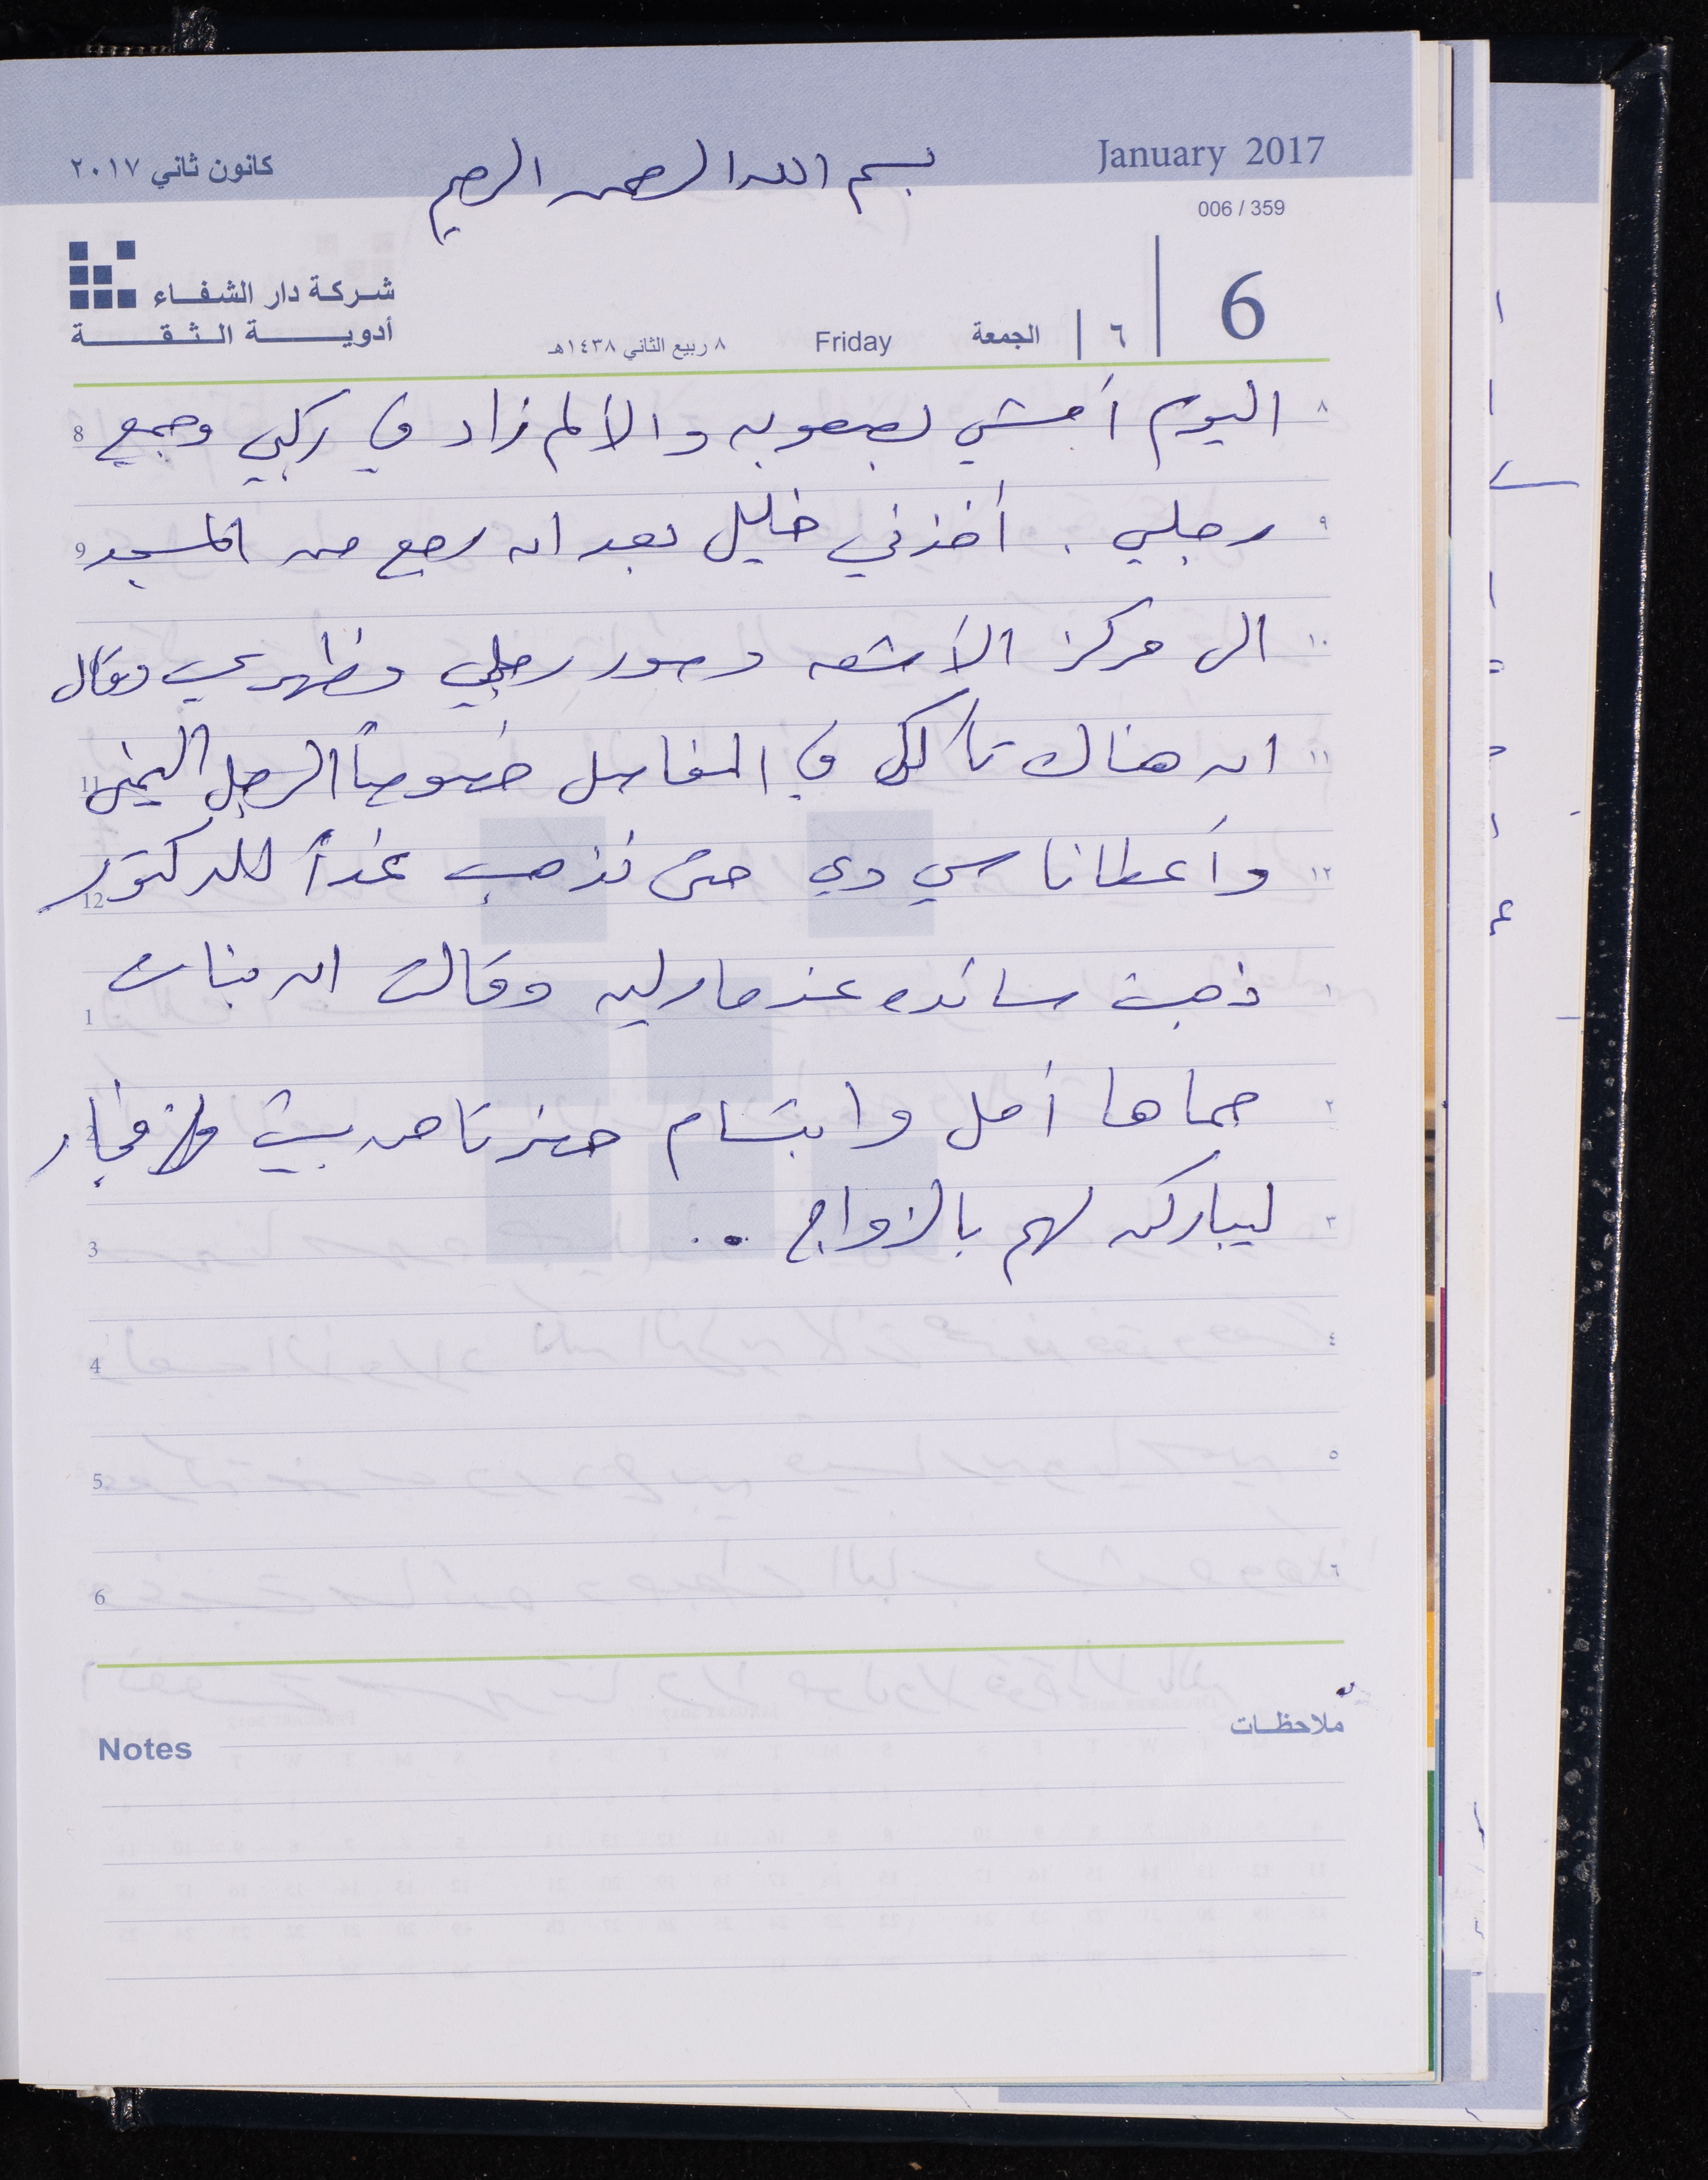 January 2017
كانون ثاني ٢٠١٧
بسم الله الرحمن الرحيم
006 / 359
شركة دار الشفاء
أدوية الثقة
6 | ٦ | الجمعة Friday ٨ ربيع الثاني ١٤٣٨هـ
٨ اليوم أمشي بصعوبه والألم زاد في ركبي وجميع 8
٩ رجلي . أخذني خليل بعد ان رجع من المسجد 9
١٠ الى مركز الأشعه وصور رجلي وظهري وقال
١١ ان هناك تأكل في المفاصل خصوصاً الرجل اليمنى 11
١٢ وأعطانا سي دي حتى نذهب غداً للدكتور 12
١ ذهبت سائده عند مارليه وقالت ان بنات 1
٢ حماها أمل وابتسام حضرتا من بيت فجار 2
٣ ليباركن لهم بالزواج .. 3
٤ 4
٥ 5
٦ 6
ملاحظات
Notes